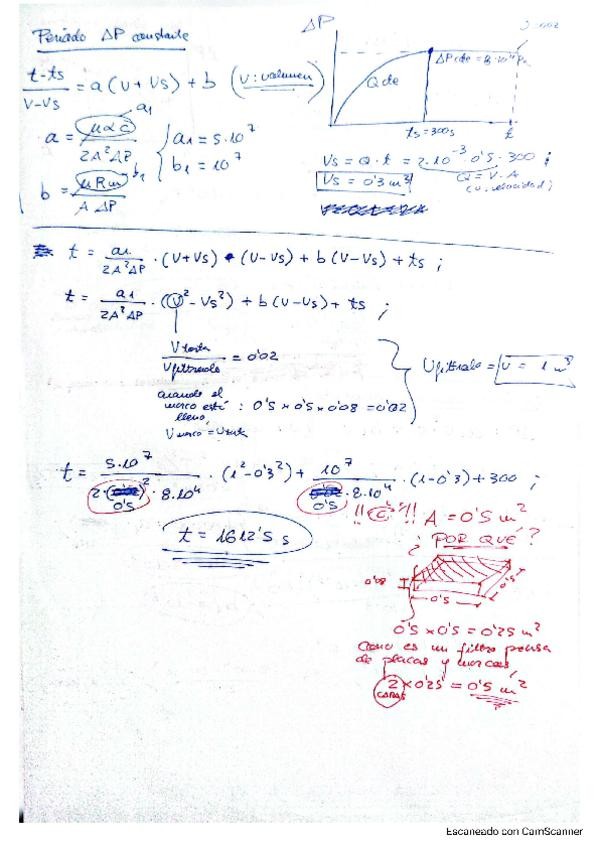 Periodo ΔP constante
t-ts/V-Vs = a (V + Vs) + b (V: volumen)
a1
a = μαc/2A²ΔP
a1 = 5·10⁷
b1 = 10⁷
b = μRm/A ΔP
b1
ΔP
Qcte
ts = 300s
t
Vs = Q · t = 2·10⁻³ · 0'5 · 300 ;
Vs = 0'3 m³
Q = V · A
(v: velocidad)
t = a1/2A²ΔP · (V+Vs) · (V-Vs) + b (V-Vs) + ts ;
t = a1/2A²ΔP · (V² - Vs²) + b (V-Vs) + ts ;
V torta/V filtrado = 0'02
cuando el
marco esté : 0'5 x 0'5 x 0'08 = 0'02
lleno,
V marco = V torta
V filtrado = V = 1 m³
t = 5·10⁷/2·(0'5)²·8·10⁴ · (1² - 0'3²) + 10⁷/0'5·8·10⁴ · (1 - 0'3) + 300 ;
t = 1612'5 s
A = 0'5 m²
¿POR QUÉ?
0'08
0'5
0'5
0'5 x 0'5 = 0'25 m²
Como es un filtro prensa
de placas y marcos,
2 x 0'25 = 0'5 m²
CARAS
Escaneado con CamScanner